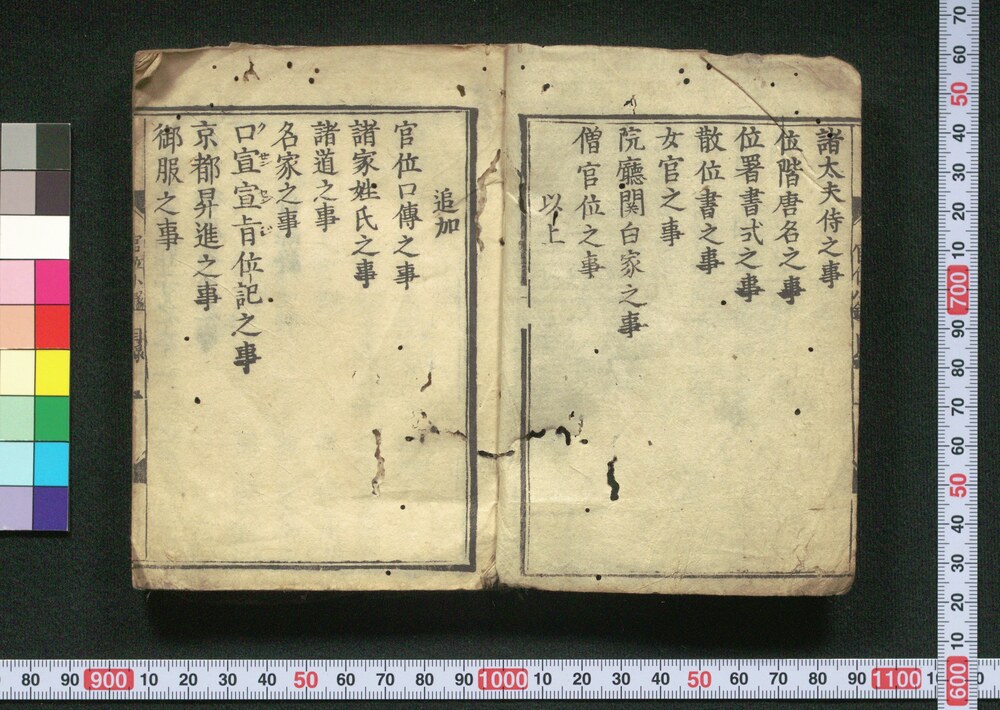 諸太夫侍之事
位階唐名之事
位署書式之事
散位書之事
女官之事
院廳関白家之事
僧官位之事
以上
追加
官位口傳之事
諸家姓氏之事
諸道之事
名家之事
口宣宣旨位記之事
京都昇進之事
御服之事
70
60
50
40
30
20
10
700
90
80
70
60
50
40
30
20
10
600
80
90
900
10
20
30
40
50
60
70
80
90
1000
10
20
30
40
50
60
70
80
90
1100